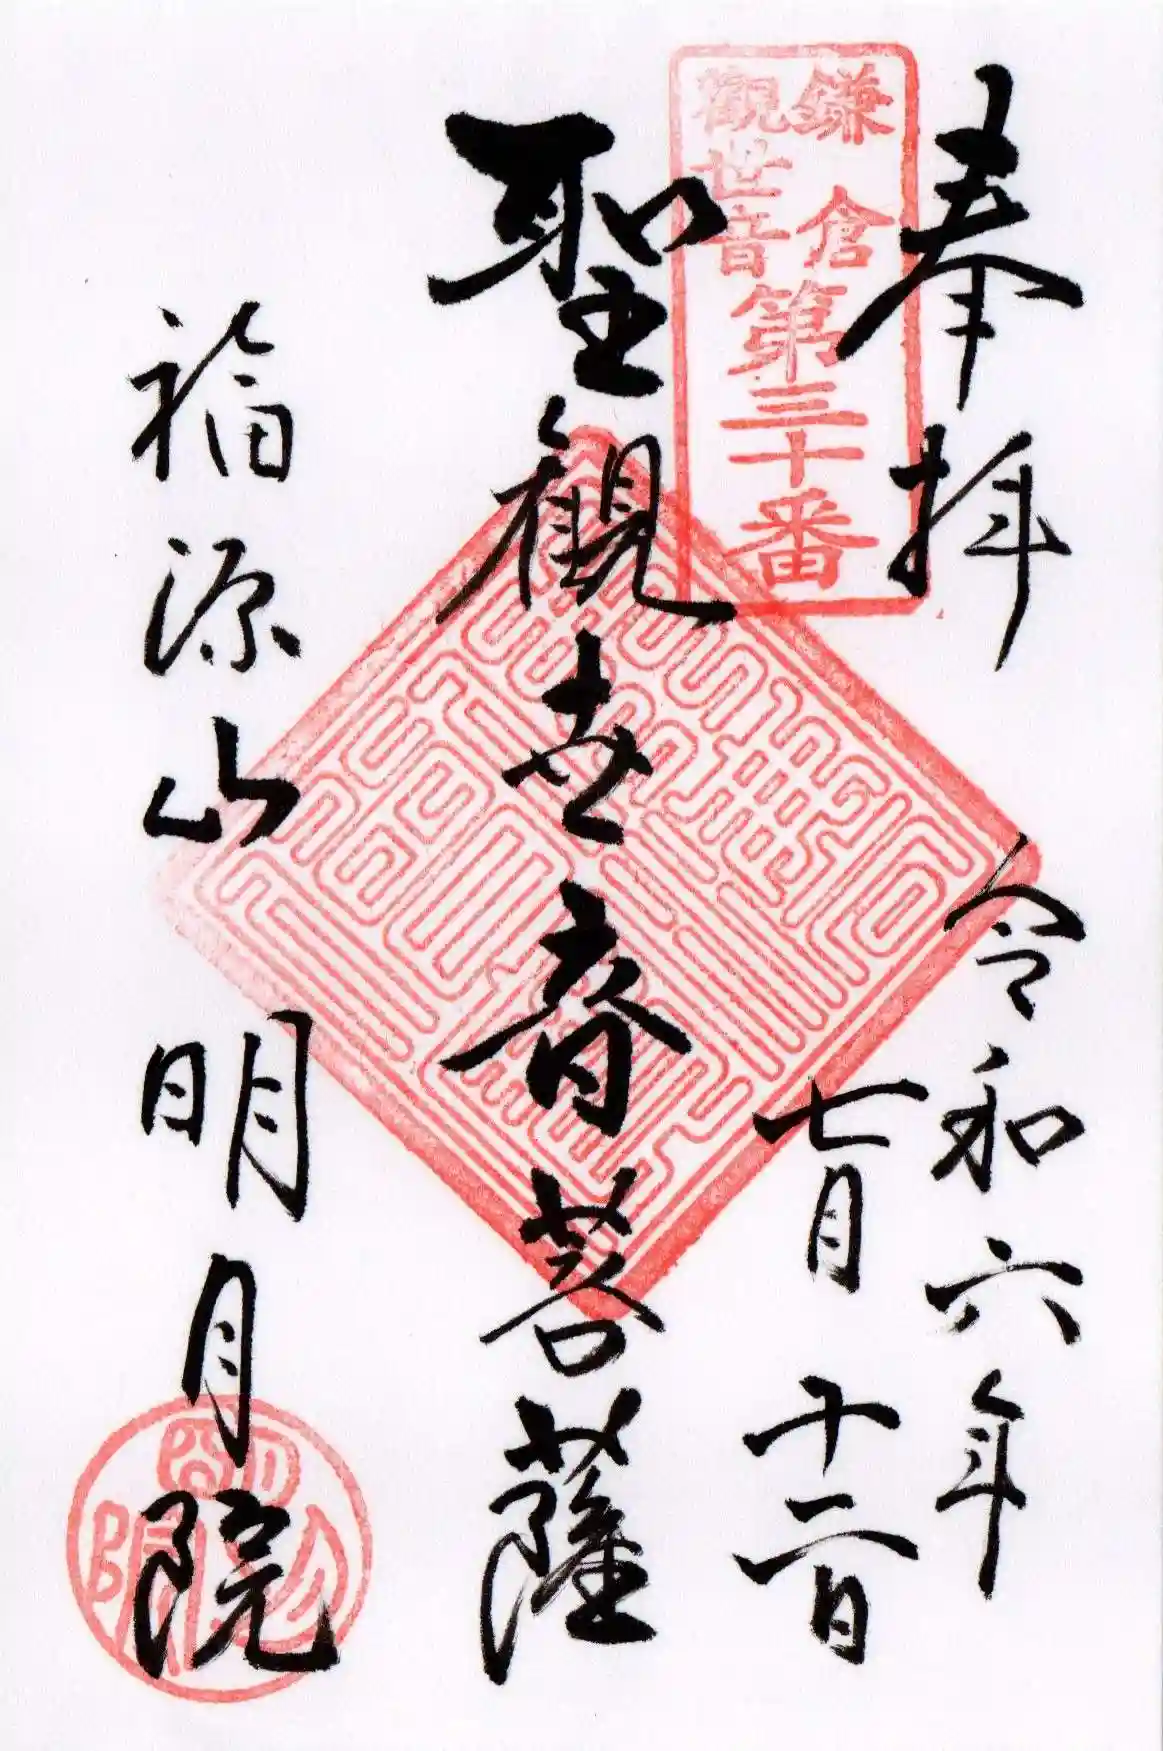 奉拝
令和六年
七月十二日
鎌倉
觀世音
第三十番
聖觀世音菩薩
福源山
明月院